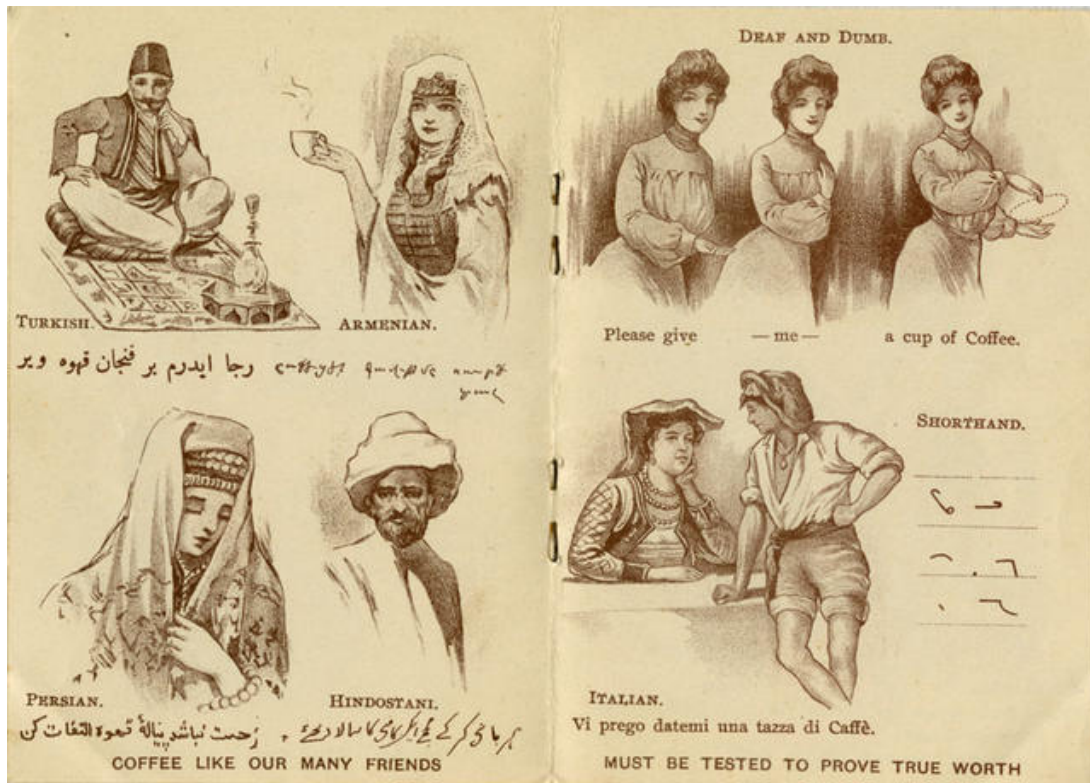 TURKISH.
ARMENIAN.
رجا ايدرم بر فنجان قهوه وير
PERSIAN.
HINDOSTANI.
زحمت نباشد پیالهٔ قهوه التفات کن
COFFEE LIKE OUR MANY FRIENDS
DEAF AND DUMB.
Please give — me — a cup of Coffee.
SHORTHAND.
ITALIAN.
Vi prego datemi una tazza di Caffè.
MUST BE TESTED TO PROVE TRUE WORTH